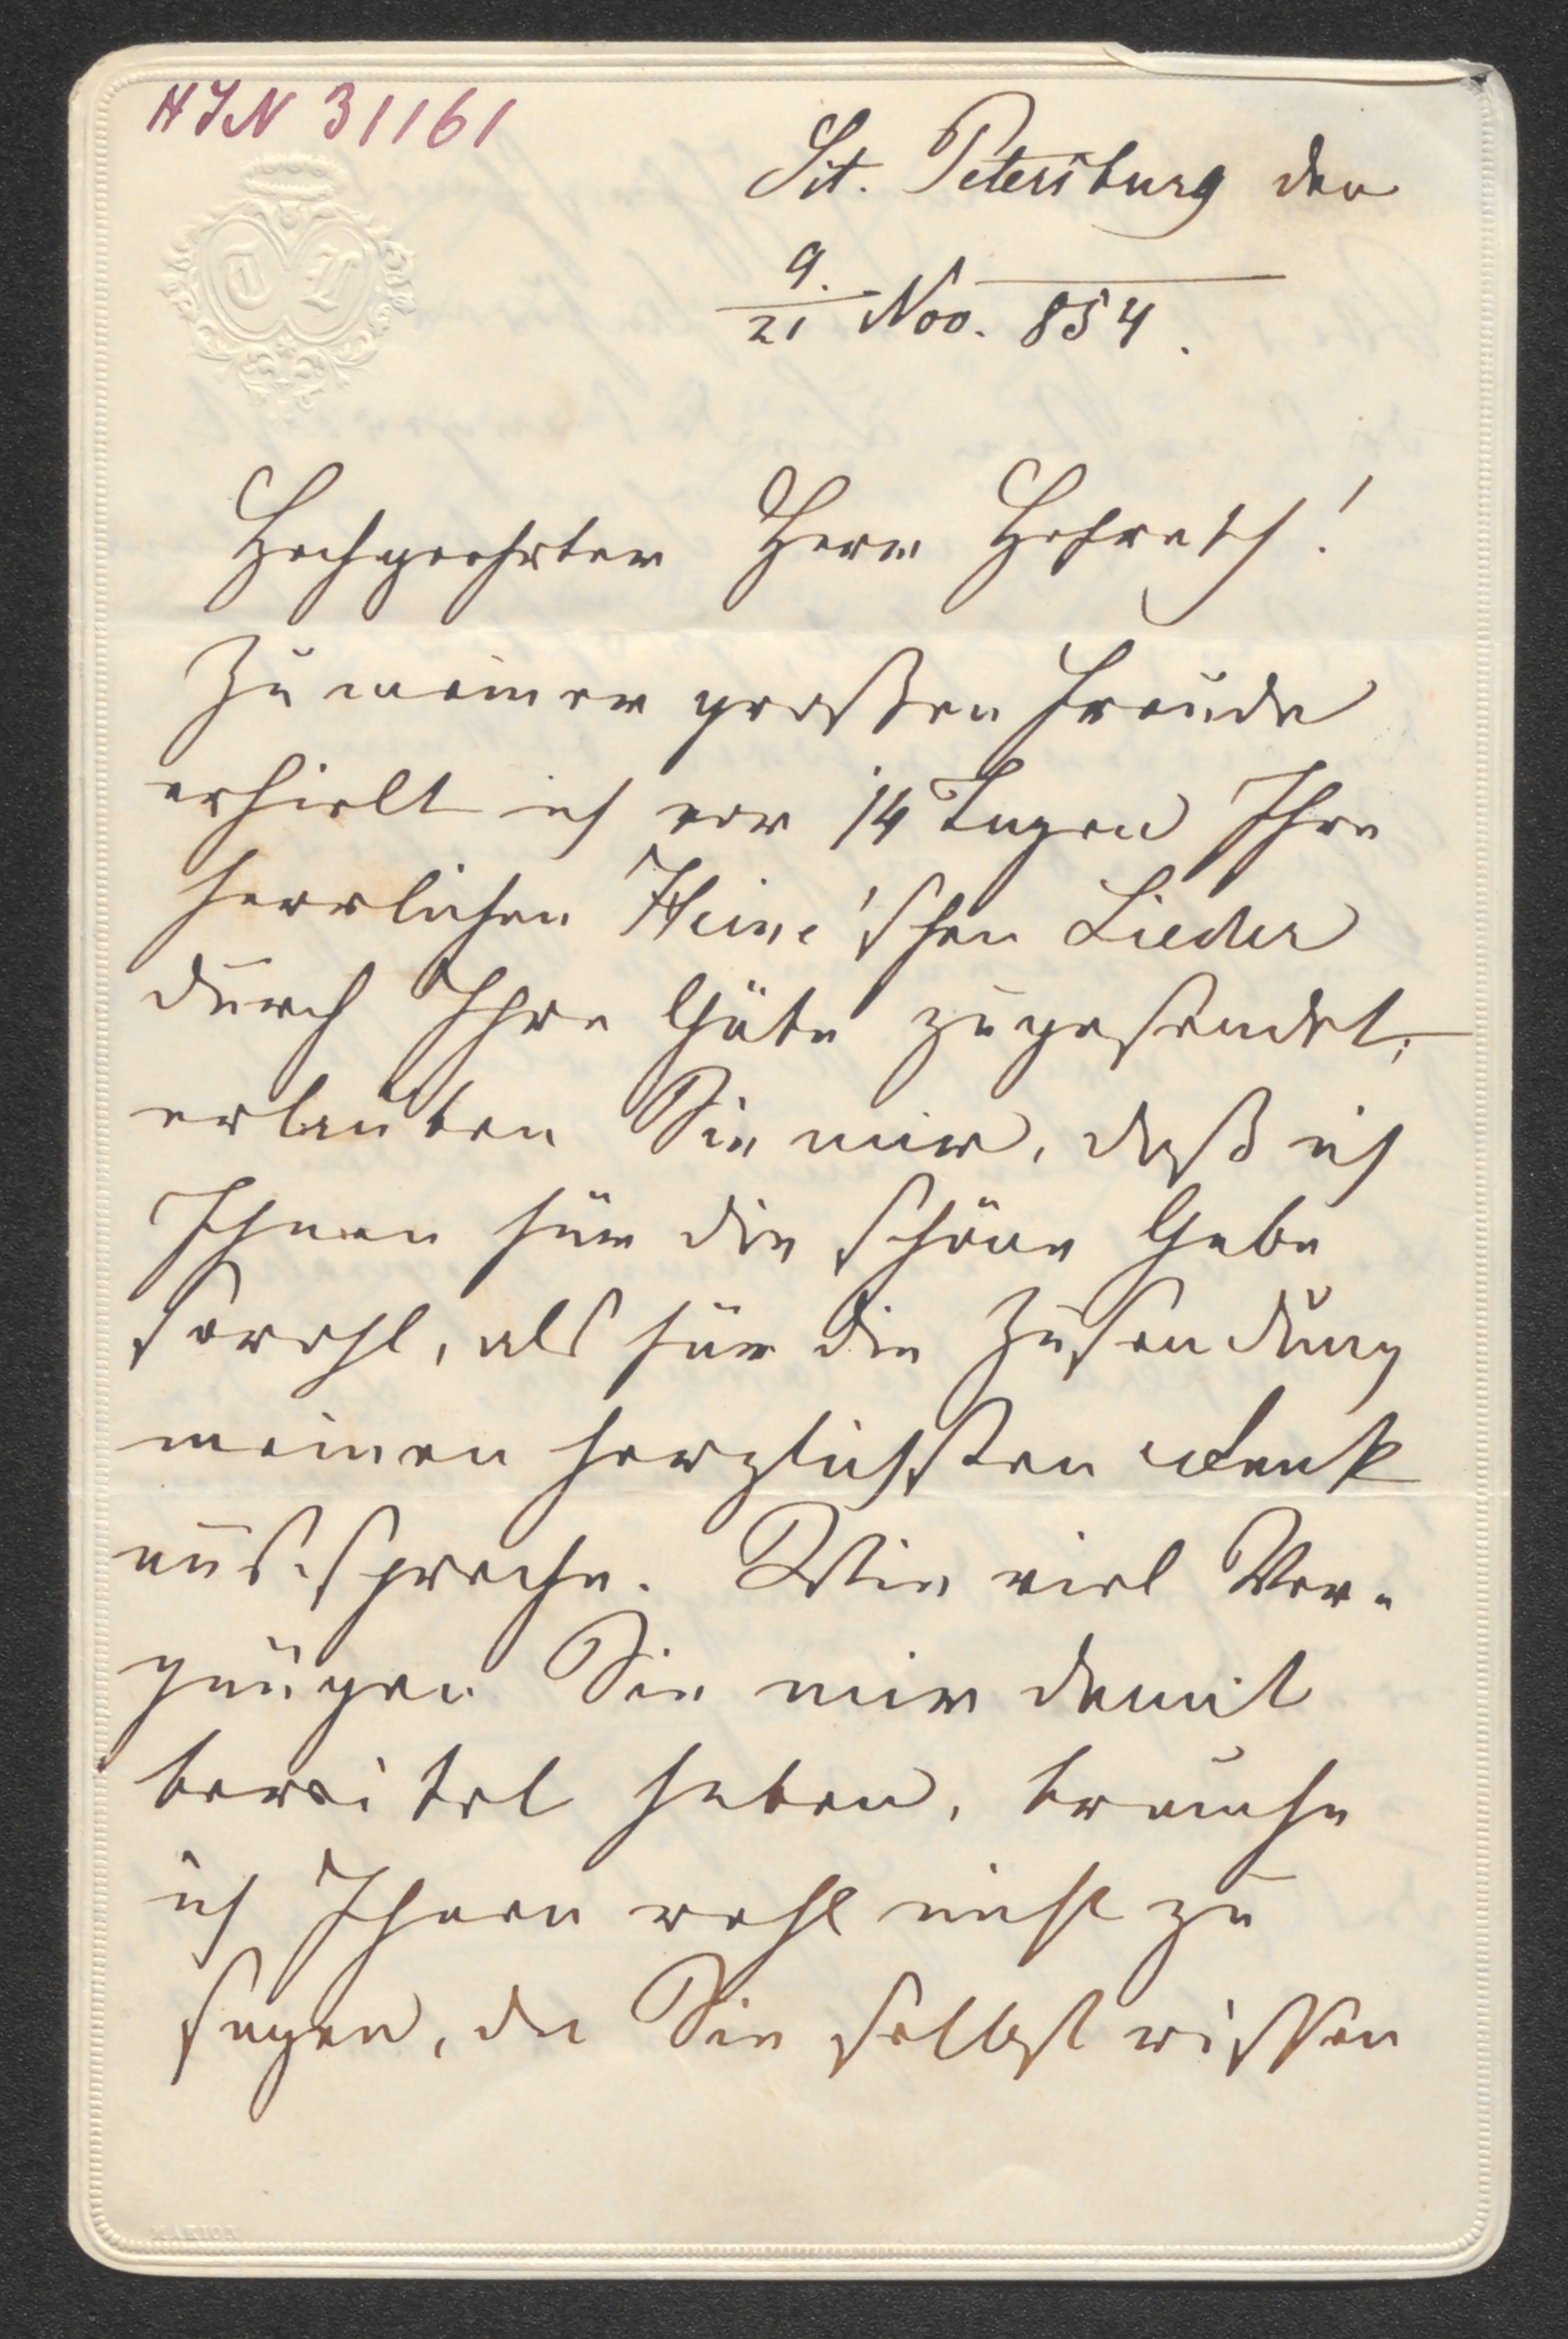 HIN 31161
St. Petersburg den
9./21 Nov. 854.
Hochgeehrter Herr Hofrath!
Zu meiner großen Freude
erhielt ich vor 14 Tagen Ihre
herrlichen Heine'schen Lieder
durch Ihre Güte zugesendet;
erlauben Sie mir, daß ich
Ihnen für die schöne Gabe
sowohl, als für die Zusendung
meinen herzlichsten Dank
ausspreche. Wie viel Ver-
gnügen Sie mir damit
bereitet haben, brauche
ich Ihnen wohl nicht zu
sagen, da Sie selbst wissen